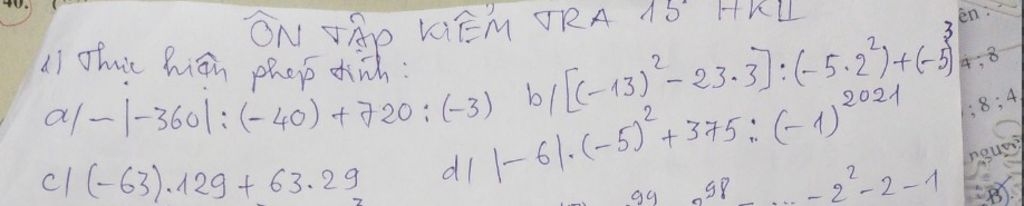 ÔN TẬP KIỂM TRA 15' HKII
1) Thực hiện phép tính:
a/ -|-360| : (-40) + 720 : (-3)
b/ [(-13)² - 23.3] : (-5.2²) + (-5)³
c/ (-63).129 + 63.29
d/ |-6|.(-5)² + 375 : (-1)²⁰²¹
- 2² - 2 - 1